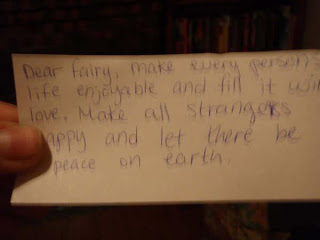 Dear fairy, make every person's
life enjoyable and fill it
love. Make all strangers
and let there be
peace on earth.